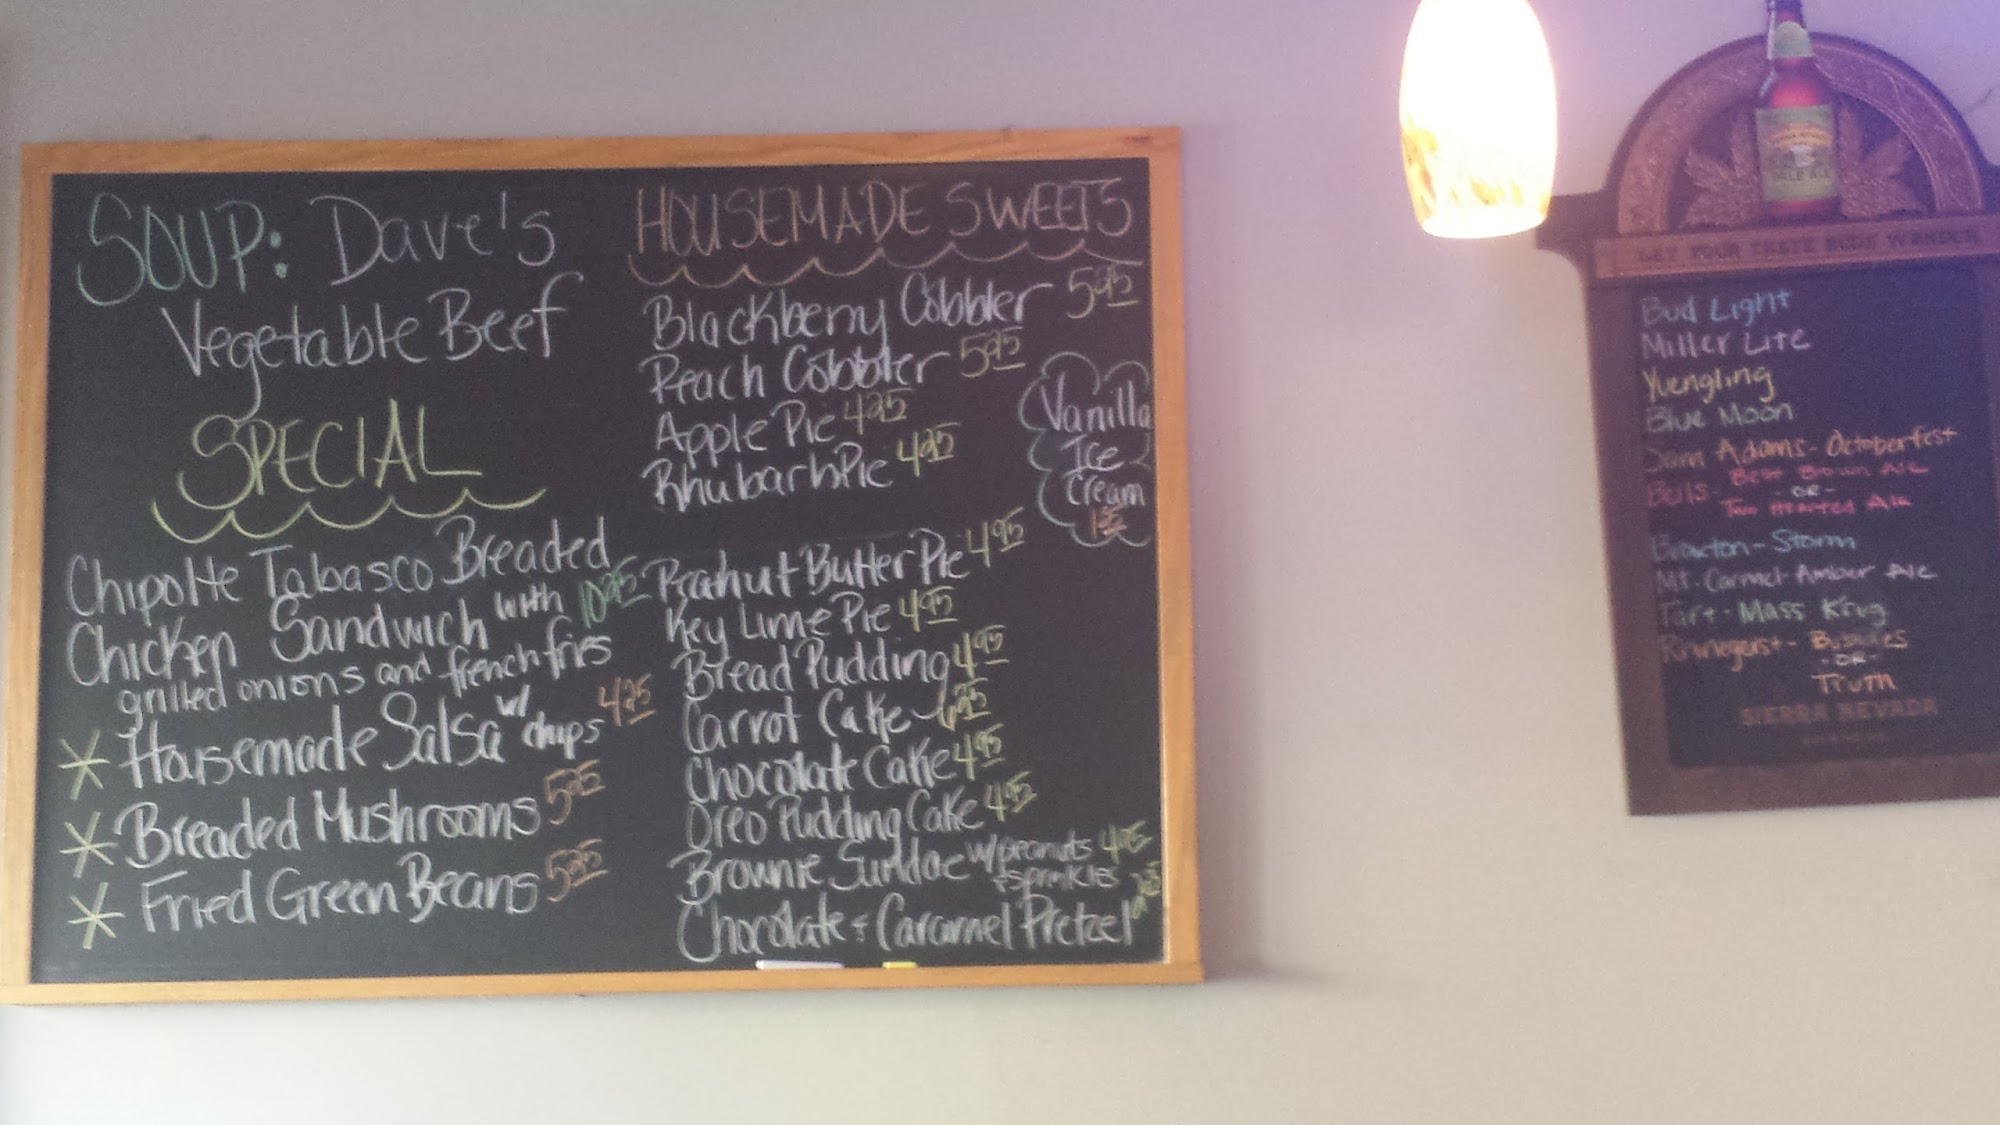 SOUP: Dave's
Vegetable Beef
SPECIAL
Chipolte Tabasco Breaded
Chicken Sandwich with 10.95
grilled onions and french fries
* Housemade Salsa w/ chips 4.25
* Breaded Mushrooms 5.25
* Fried Green Beans 5.25
HOUSEMADE SWEETS
Blackberry Cobbler 5.95
Peach Cobbler 5.95
Apple Pie 4.25
Rhubarb Pie 4.25
Vanilla
Ice
Cream
Peanut Butter Pie 4.95
Key Lime Pie 4.95
Bread Pudding 4.95
Carrot Cake 6.95
Chocolate Cake 4.95
Oreo Pudding Cake 4.95
Brownie Sundae w/ peanuts 4.95
+ sprinkles
Chocolate + Caramel Pretzel
PALE ALE
LET YOUR TASTE BUDS WANDER
Bud Light
Miller Lite
Yuengling
Blue Moon
Sam Adams - Octoberfest
Bells - Best Brown Ale
- OR -
Two Hearted Ale
Braxton - Storm
Mt. Carmel - Amber Ale
Tart - Mass Krug
Rhinegeist - Bubbles
- OR -
Truth
SIERRA NEVADA